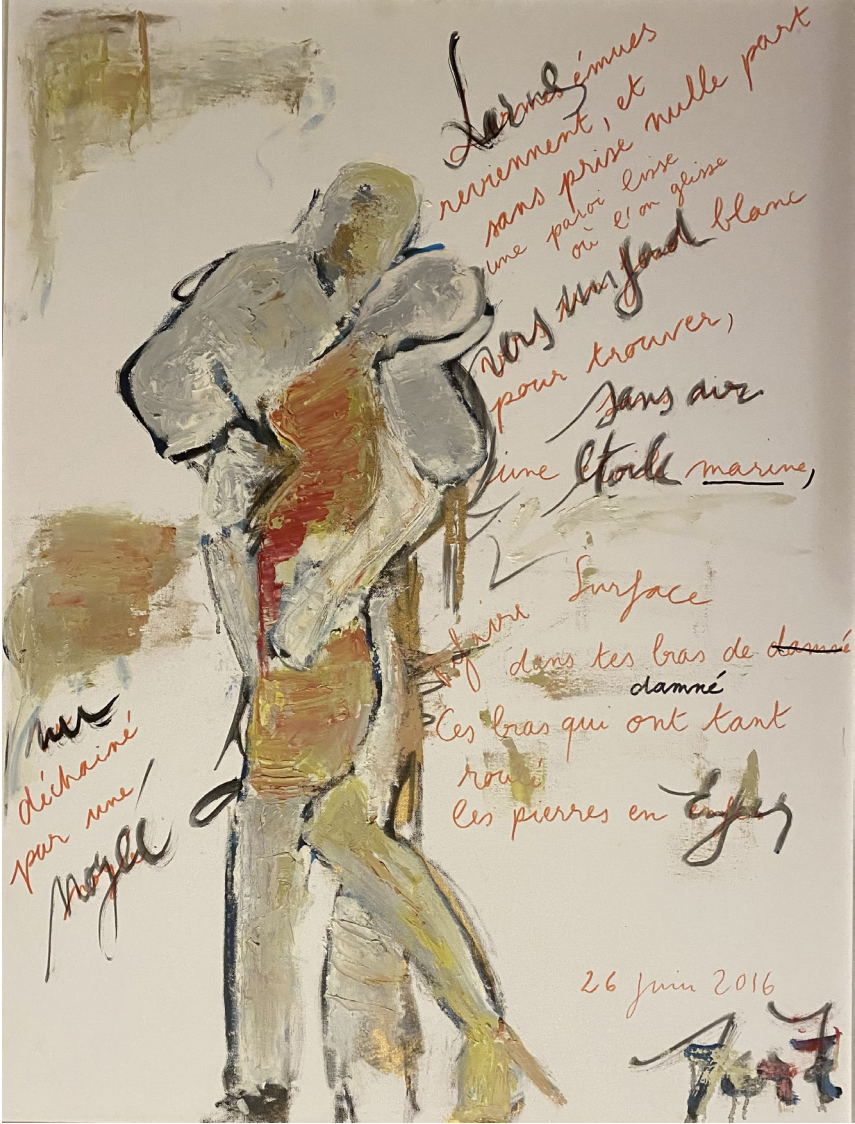 Larmes émues
reviennent, et
sans prise nulle part
une paroi lisse
où l'on glisse
vers un fond blanc
pour trouver,
sans air
une étoile marine,
Surface
faire
dans tes bras de damné
damné
Ces bras qui ont tant
roulé
les pierres en Enfer
nu
déchainé
par une
noyée
26 Juin 2016